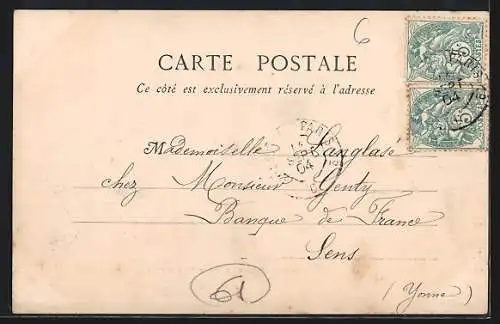 6
CARTE POSTALE
Ce côté est exclusivement réservé à l'adresse
Mademoiselle Langlase
chez Monsieur Genty
Banque de France
Sens
(Yonne)
61